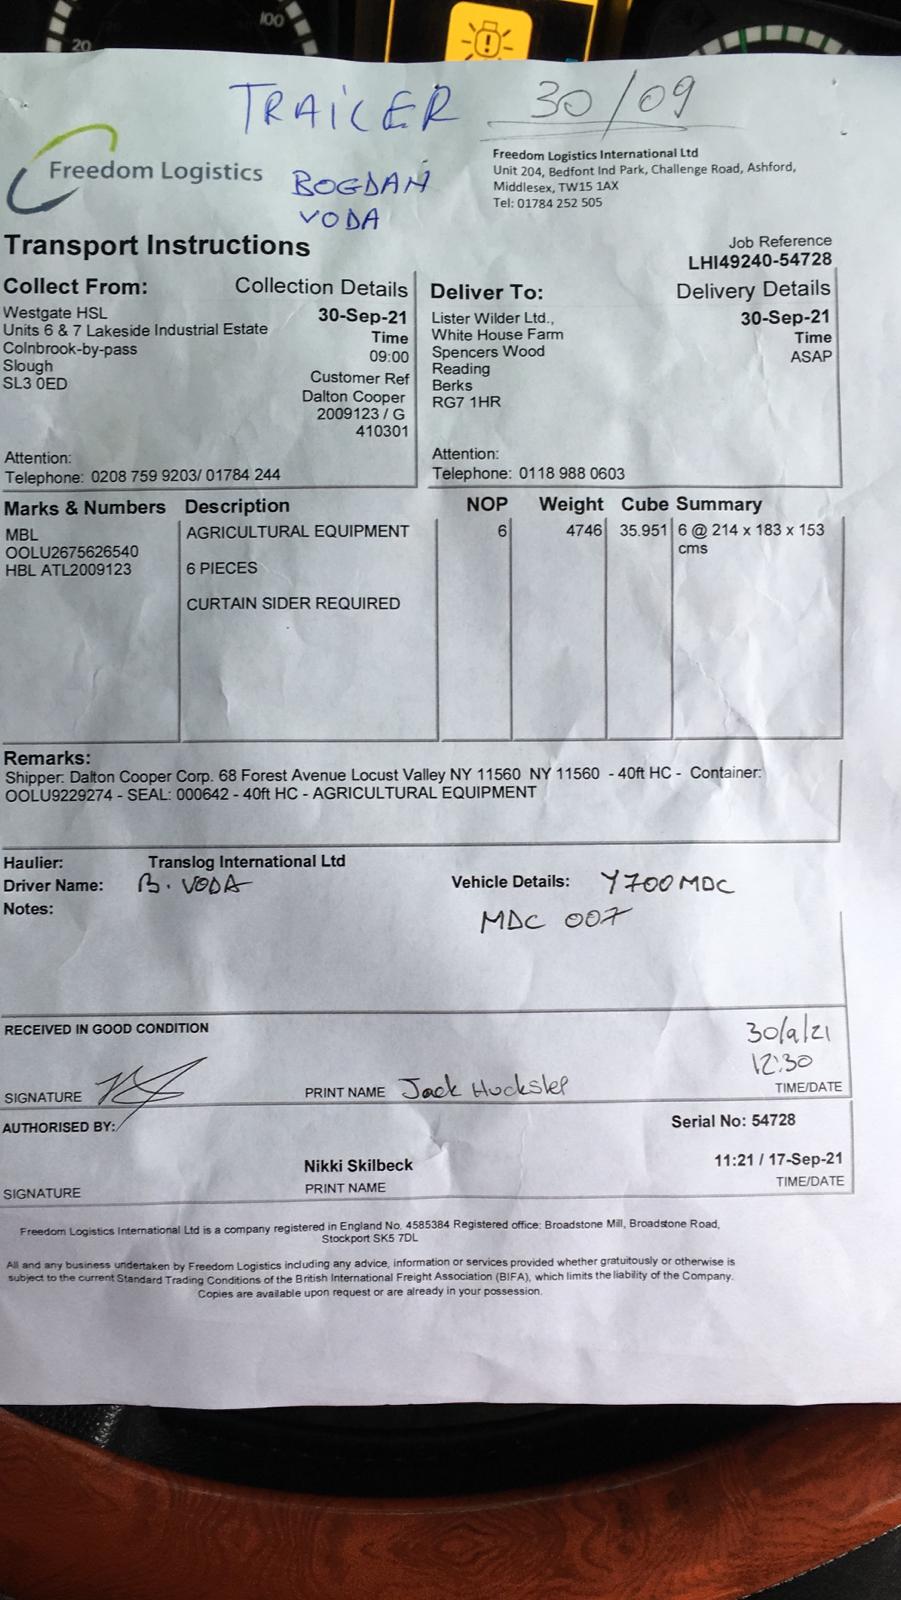 20
100
TRAILER 30/09
Freedom Logistics
BOGDAN
VODA
Freedom Logistics International Ltd
Unit 204, Bedfont Ind Park, Challenge Road, Ashford,
Middlesex, TW15 1AX
Tel: 01784 252 505
Transport Instructions
Job Reference
LHI49240-54728
Collect From: Collection Details
Westgate HSL
Units 6 & 7 Lakeside Industrial Estate
Colnbrook-by-pass
Slough
SL3 0ED
30-Sep-21
Time
09:00
Customer Ref
Dalton Cooper
2009123 / G
410301
Attention:
Telephone: 0208 759 9203/ 01784 244
Deliver To: Delivery Details
Lister Wilder Ltd.,
White House Farm
Spencers Wood
Reading
Berks
RG7 1HR
30-Sep-21
Time
ASAP
Attention:
Telephone: 0118 988 0603
Marks & Numbers Description NOP Weight Cube Summary
MBL
OOLU2675626540
HBL ATL2009123
AGRICULTURAL EQUIPMENT
6 PIECES
CURTAIN SIDER REQUIRED
6 4746 35.951 6 @ 214 x 183 x 153
cms
Remarks:
Shipper: Dalton Cooper Corp. 68 Forest Avenue Locust Valley NY 11560 NY 11560 - 40ft HC - Container:
OOLU9229274 - SEAL: 000642 - 40ft HC - AGRICULTURAL EQUIPMENT
Haulier: Translog International Ltd
Driver Name: B. VODA Vehicle Details: Y700MDC
Notes: MDC 007
RECEIVED IN GOOD CONDITION
30/9/21
12:30
SIGNATURE PRINT NAME Jack Huckstep TIME/DATE
AUTHORISED BY: Serial No: 54728
Nikki Skilbeck 11:21 / 17-Sep-21
SIGNATURE PRINT NAME TIME/DATE
Freedom Logistics International Ltd is a company registered in England No. 4585384 Registered office: Broadstone Mill, Broadstone Road,
Stockport SK5 7DL
All and any business undertaken by Freedom Logistics including any advice, information or services provided whether gratuitously or otherwise is
subject to the current Standard Trading Conditions of the British International Freight Association (BIFA), which limits the liability of the Company.
Copies are available upon request or are already in your possession.